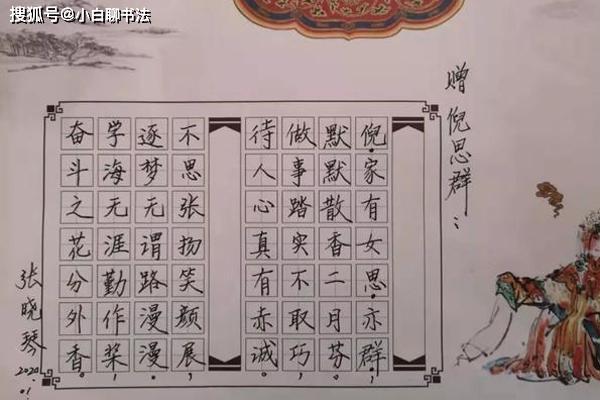 搜狐号@小白聊书法
赠倪思群：
倪家有女思亦群；
默默散香二月芬，
做事踏实不取巧，
待人心真有赤诚。
不思张扬笑颜展，
逐梦无谓路漫漫。
学海无涯勤作桨，
奋斗之花分外香。
张晓琴
2020.